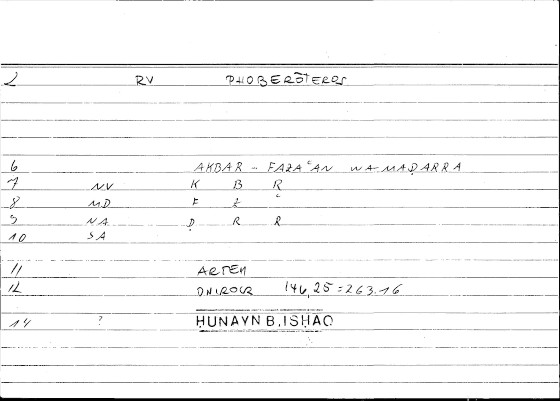 2 RV PHOBERŌTEROS
6 AKBAR - FAZAʿAN WA-MAḌARRA
7 NV K B R
8 MD F Z ʿ
9 NA Ḍ R R
10 SA
11 ARTEM
12 ONIROCR 146,25=263.16
14 ? ḤUNAYN B. ISḤAQ